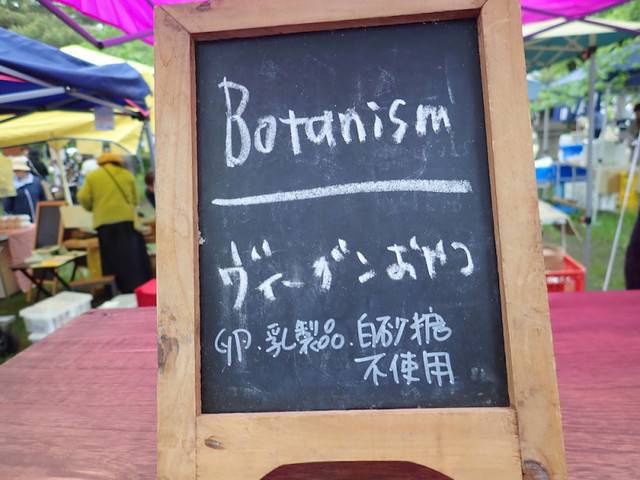 Botanism
ヴィーガンおやつ
卵・乳製品・白砂糖
不使用